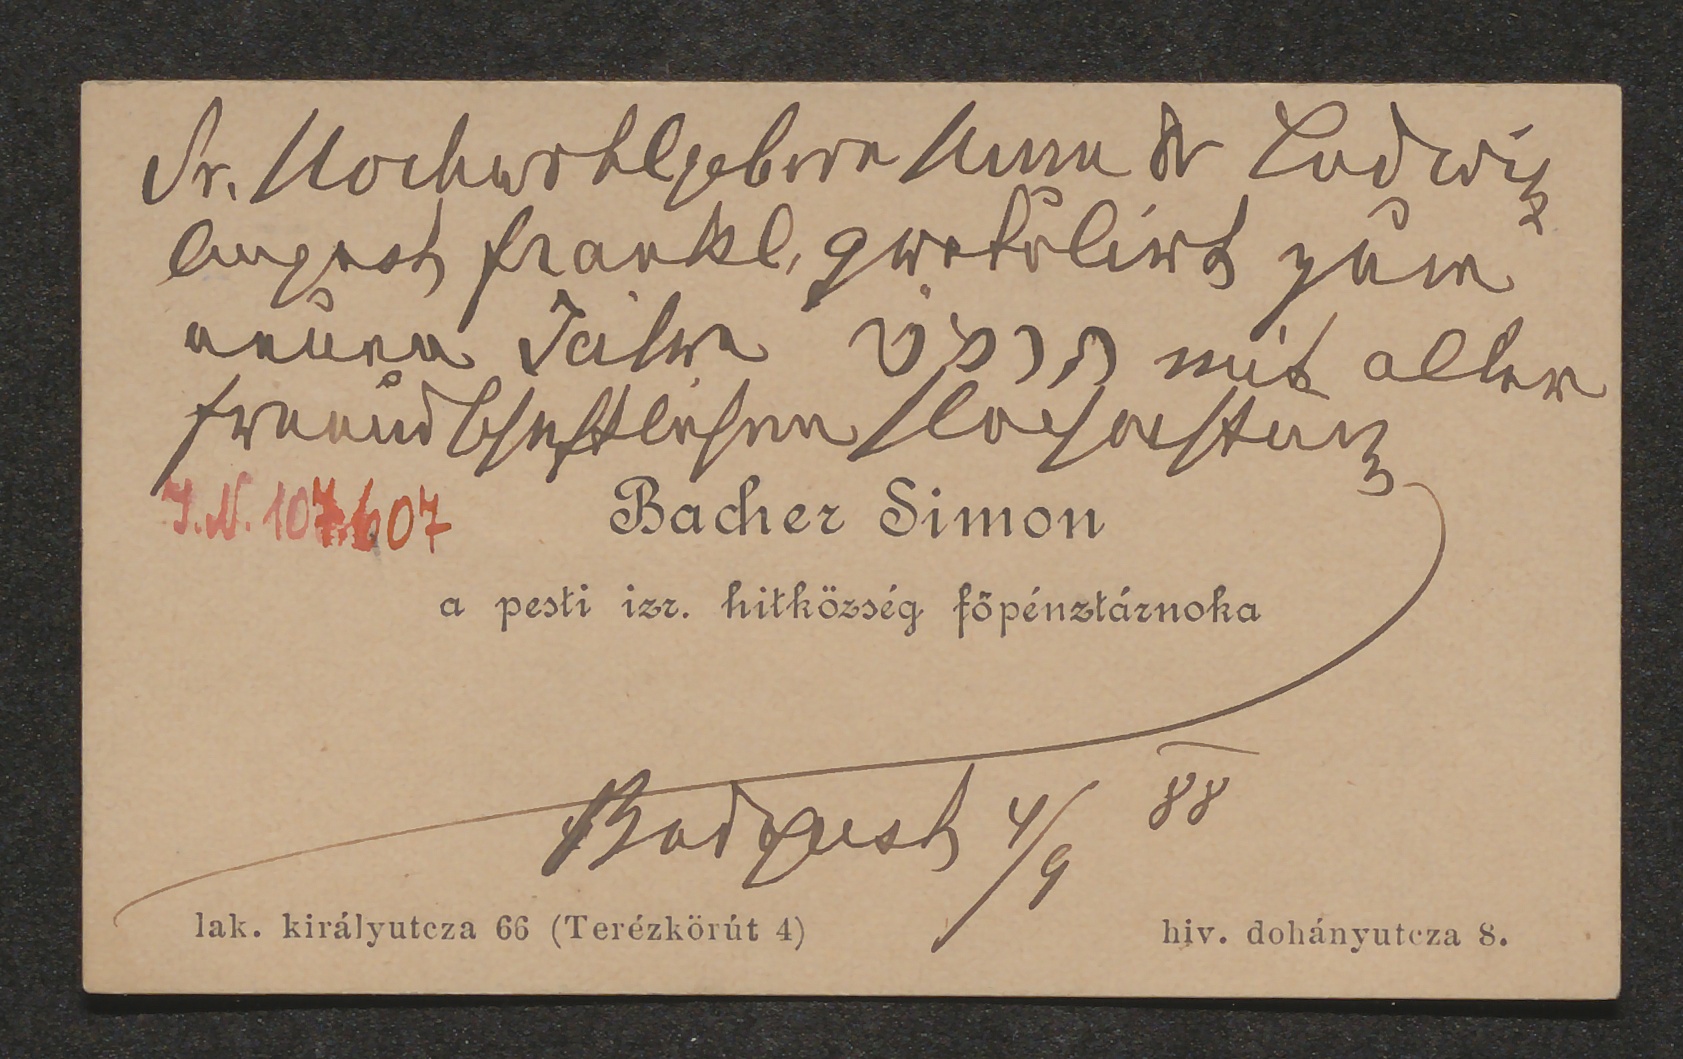 Sr. Hochwohlgeboren Herrn Dr Ludwig
August Frankl, gratulirt zum
neuen Jahre תרמ״ט mit aller
freundschaftlichen Hochachtung
J.N. 107.607
Bacher Simon
a pesti izr. hitközség főpénztárnoka
Budpest 4/9 88
lak. királyutcza 66 (Terézkörút 4) hiv. dohányutcza 8.